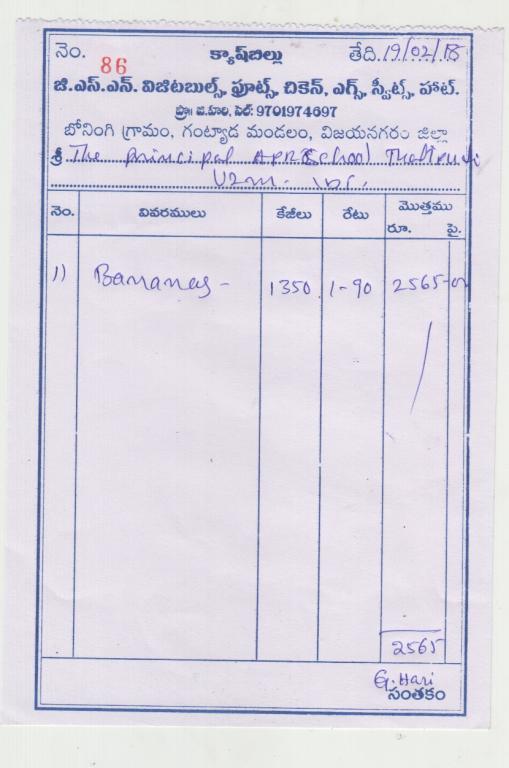 నెం. 86 క్యాష్‌బిల్లు తేది. 19/02/18
జి.ఎస్.ఎన్. విజిటబుల్స్, ఫ్రూట్స్, చికెన్, ఎగ్స్, స్వీట్స్, హాట్.
ప్రొ॥ జి.హరి, సెల్: 9701974697
బోనింగి గ్రామం, గంట్యాడ మండలం, విజయనగరం జిల్లా
శ్రీ The principal APR School
Vzm.
నెం. వివరములు కేజీలు రేటు మొత్తము
రూ. పై.
1) Bananas - 1350 1-90 2565-00
2565
G. Hari
సంతకం